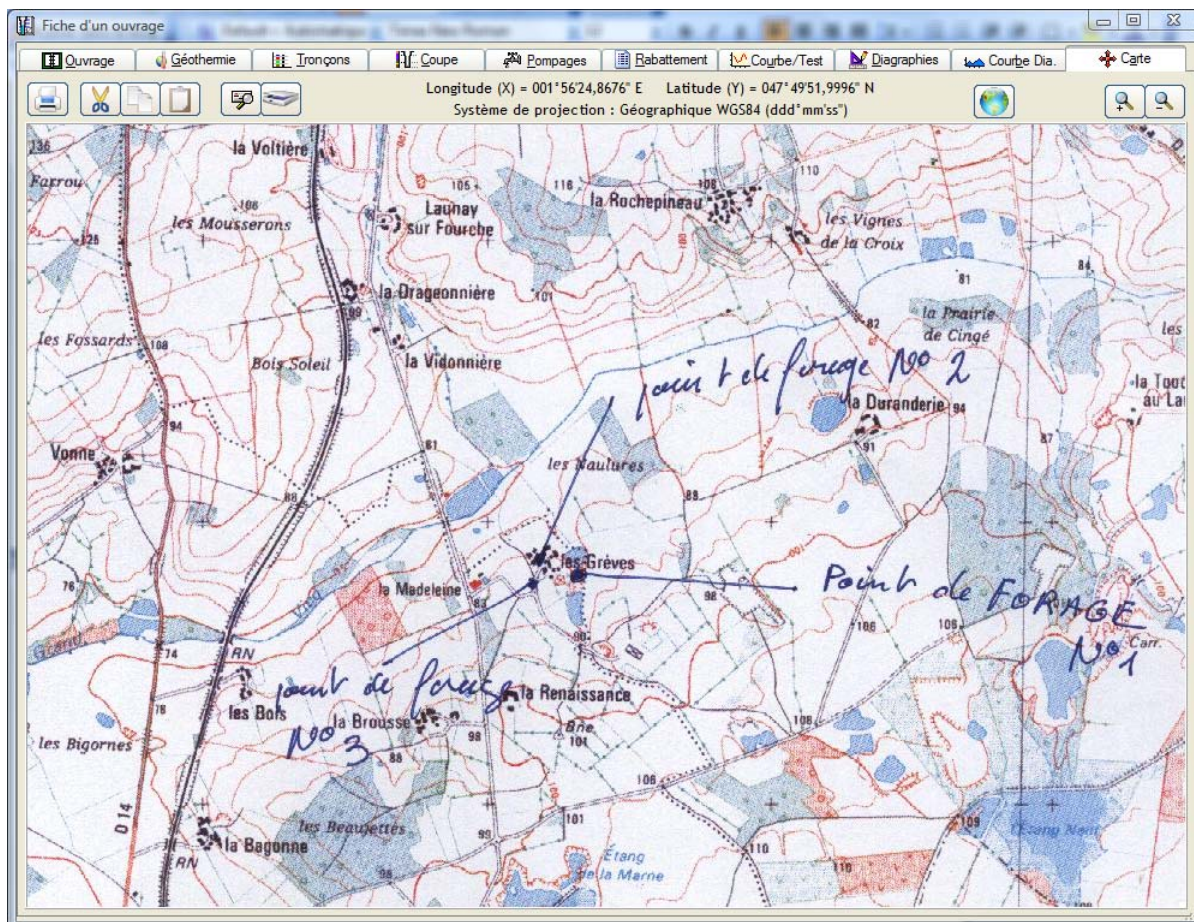 Fiche d'un ouvrage
Ouvrage
Géothermie
Tronçons
Coupe
Pompages
Rabattement
Courbe/Test
Diagraphies
Courbe Dia.
Carte
Longitude (X) = 001°56'24,8676" E Latitude (Y) = 047°49'51,9996" N
Système de projection : Géographique WGS84 (ddd°mm'ss")
136
la Voltière
Farrou
106
les Mousserons
125
105
Launay
sur Fourche
116
la Rochepineau
108
110
les Vignes
de la Croix
100
la Drageonnière
99
101
81
84
la Prairie
de Cingé
82
les Fossards
108
Bois Soleil
la Vidonnière
les
point de forage No 2
la Duranderie
94
91
87
94
Vonne
81
les Naulures
88
88
les Grèves
la Madeleine
83
76
98
Point de FORAGE
No 1
Carr.
106
106
90
74
RN
78
point de forage
No 3
les Bois
la Brousse
98
la Renaissance
Bne
101
108
les Bigornes
88
106
D 14
RN
la Bagonne
les Beaujettes
99
101
98
Étang
de la Marne
110
110
109
l'Étang Neuf